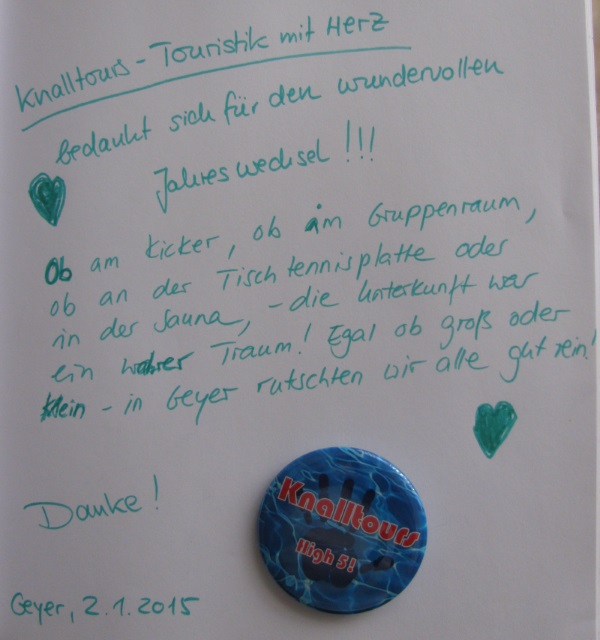 Knalltours - Touristik mit Herz
bedankt sich für den wundervollen
Jahreswechsel !!!
Ob am Kicker, ob im Gruppenraum,
ob an der Tischtennisplatte oder
in der Sauna, - die Unterkunft war
ein wahrer Traum! Egal ob groß oder
klein - in Geyer rutschten wir alle gut rein!
Danke!
Knalltours
High 5!
Geyer, 2.1.2015